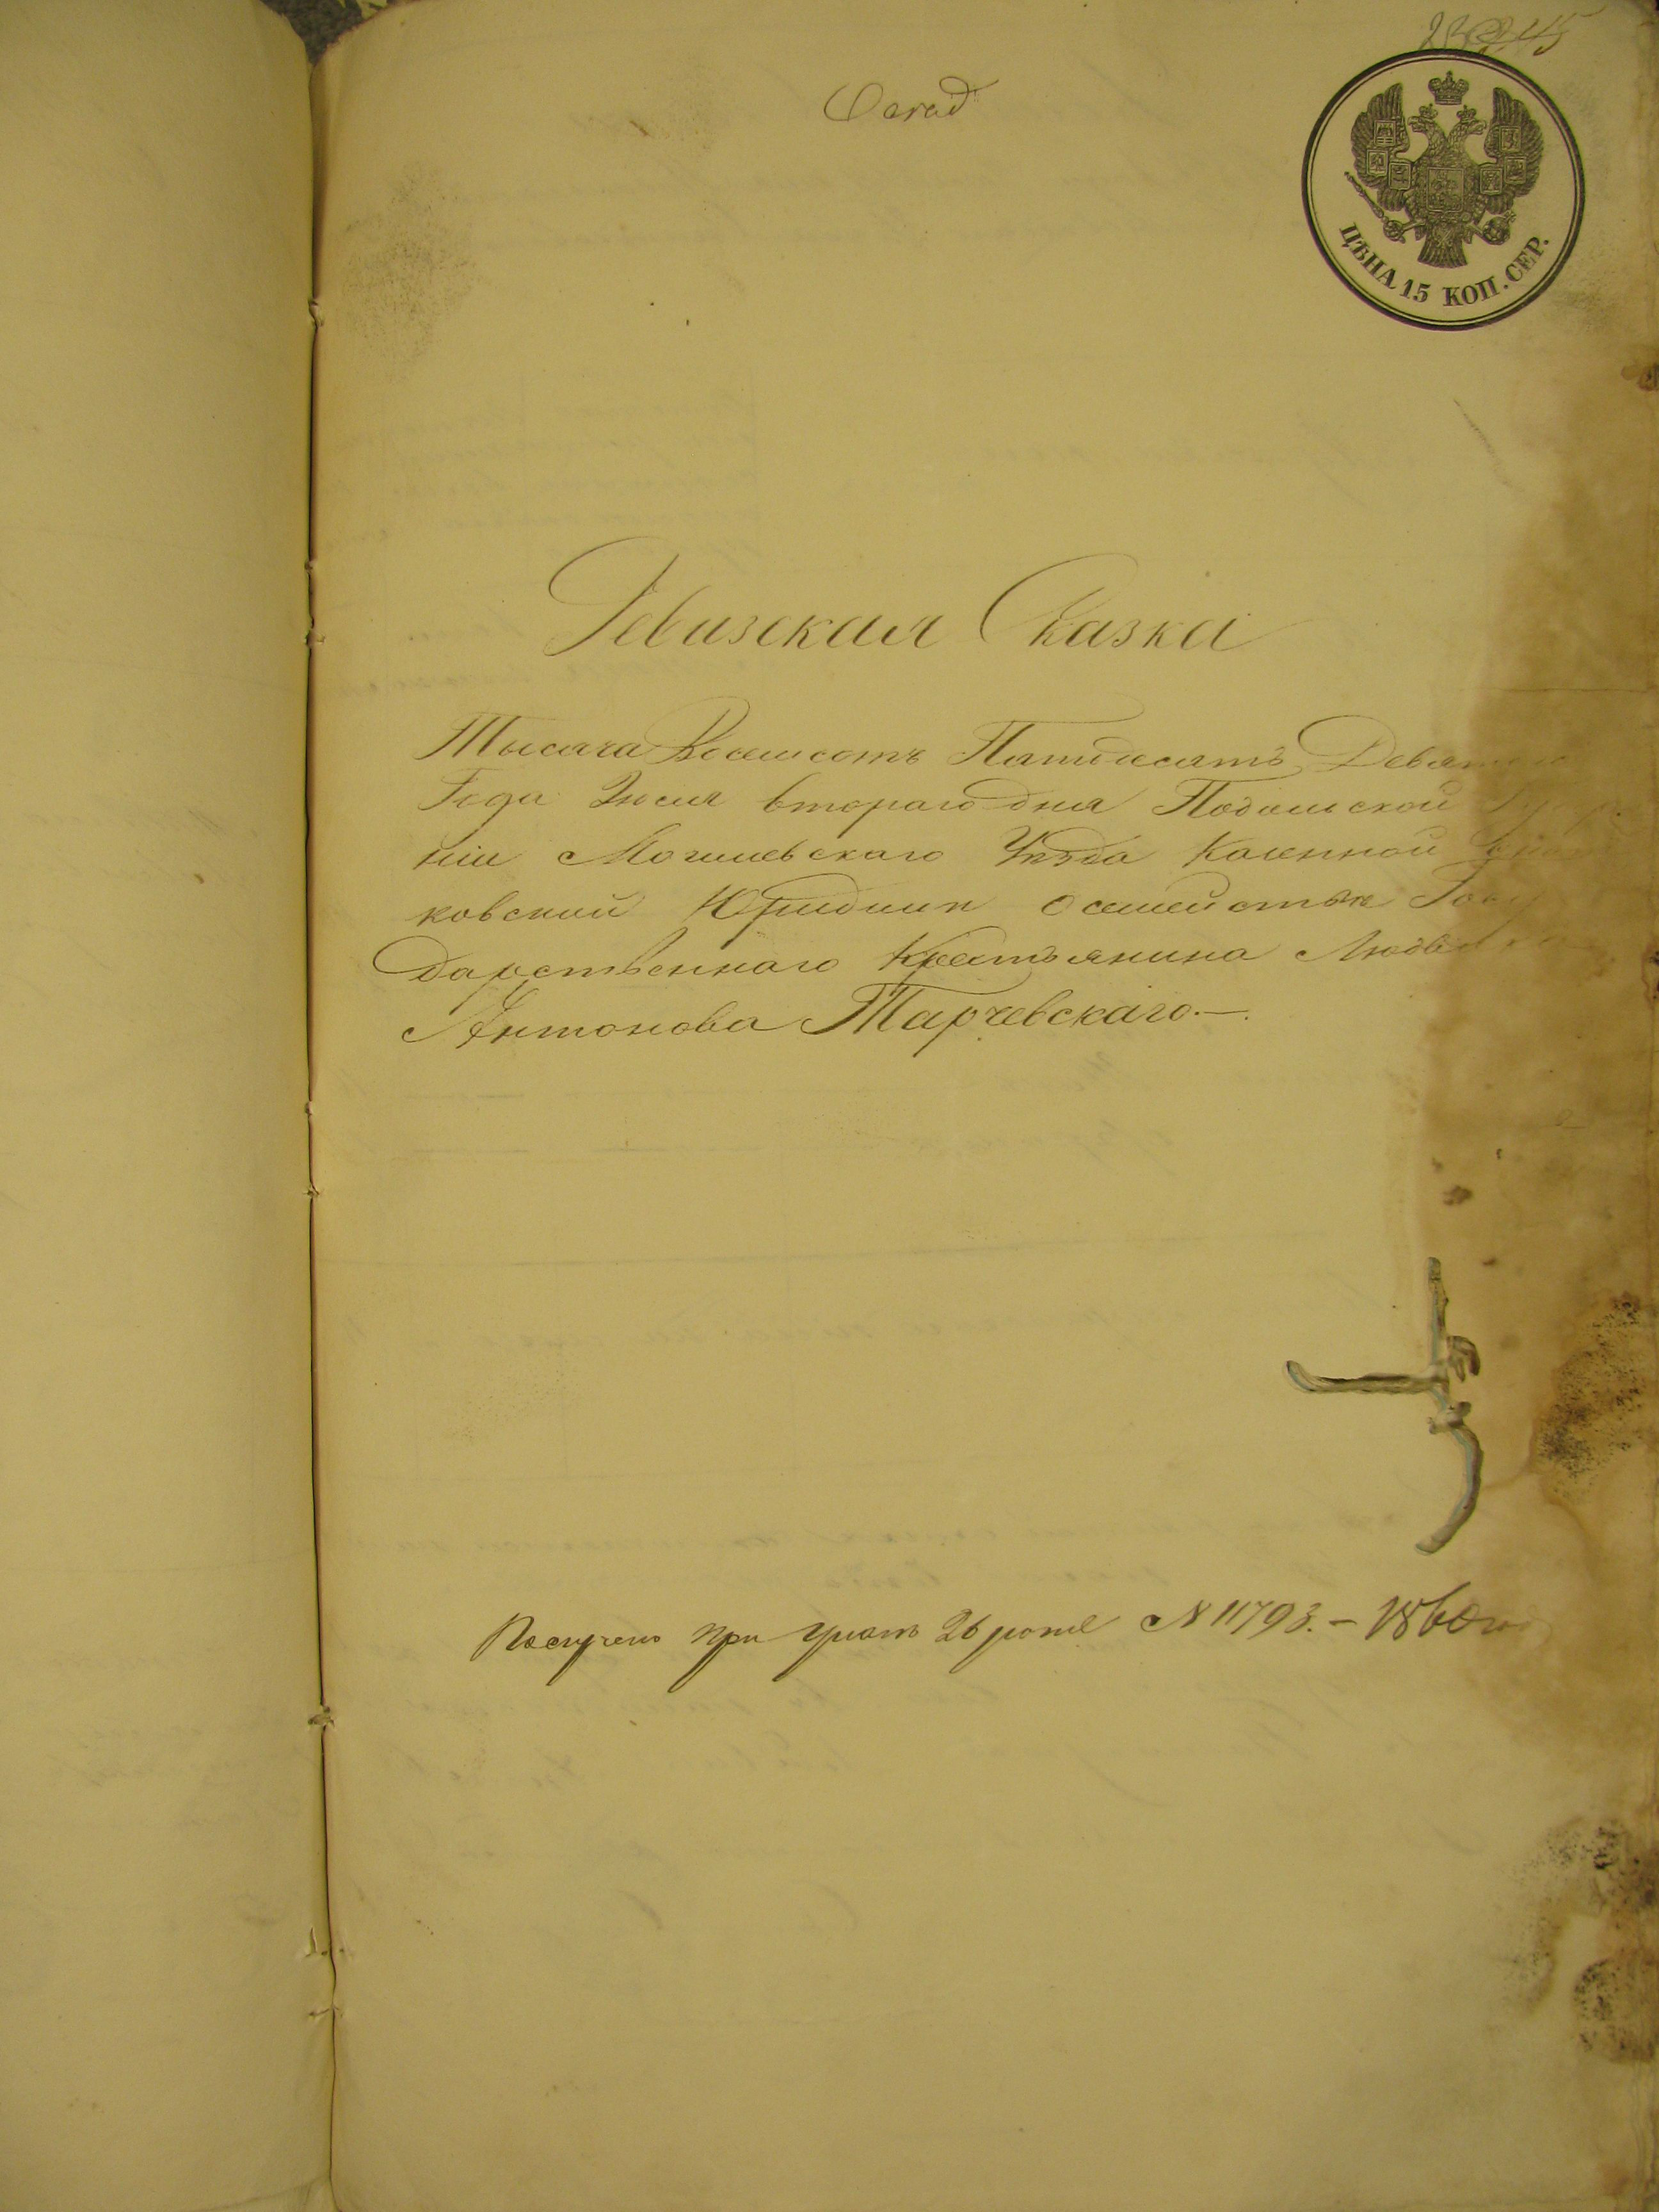 ЦѢНА 15 КОП. СЕР.
Ревизская Сказка
Тысяча Восемсотъ Пятдесятъ Девятаго
Года Июля втораго дня Подольской
ніи Могилевскаго Уѣзда Казенной
ковской Юридики о семействѣ Госу
дарственнаго Крестьянина Людвика
Антонова Тарчевскаго.—
Получено при 26 N 11793. — 1860